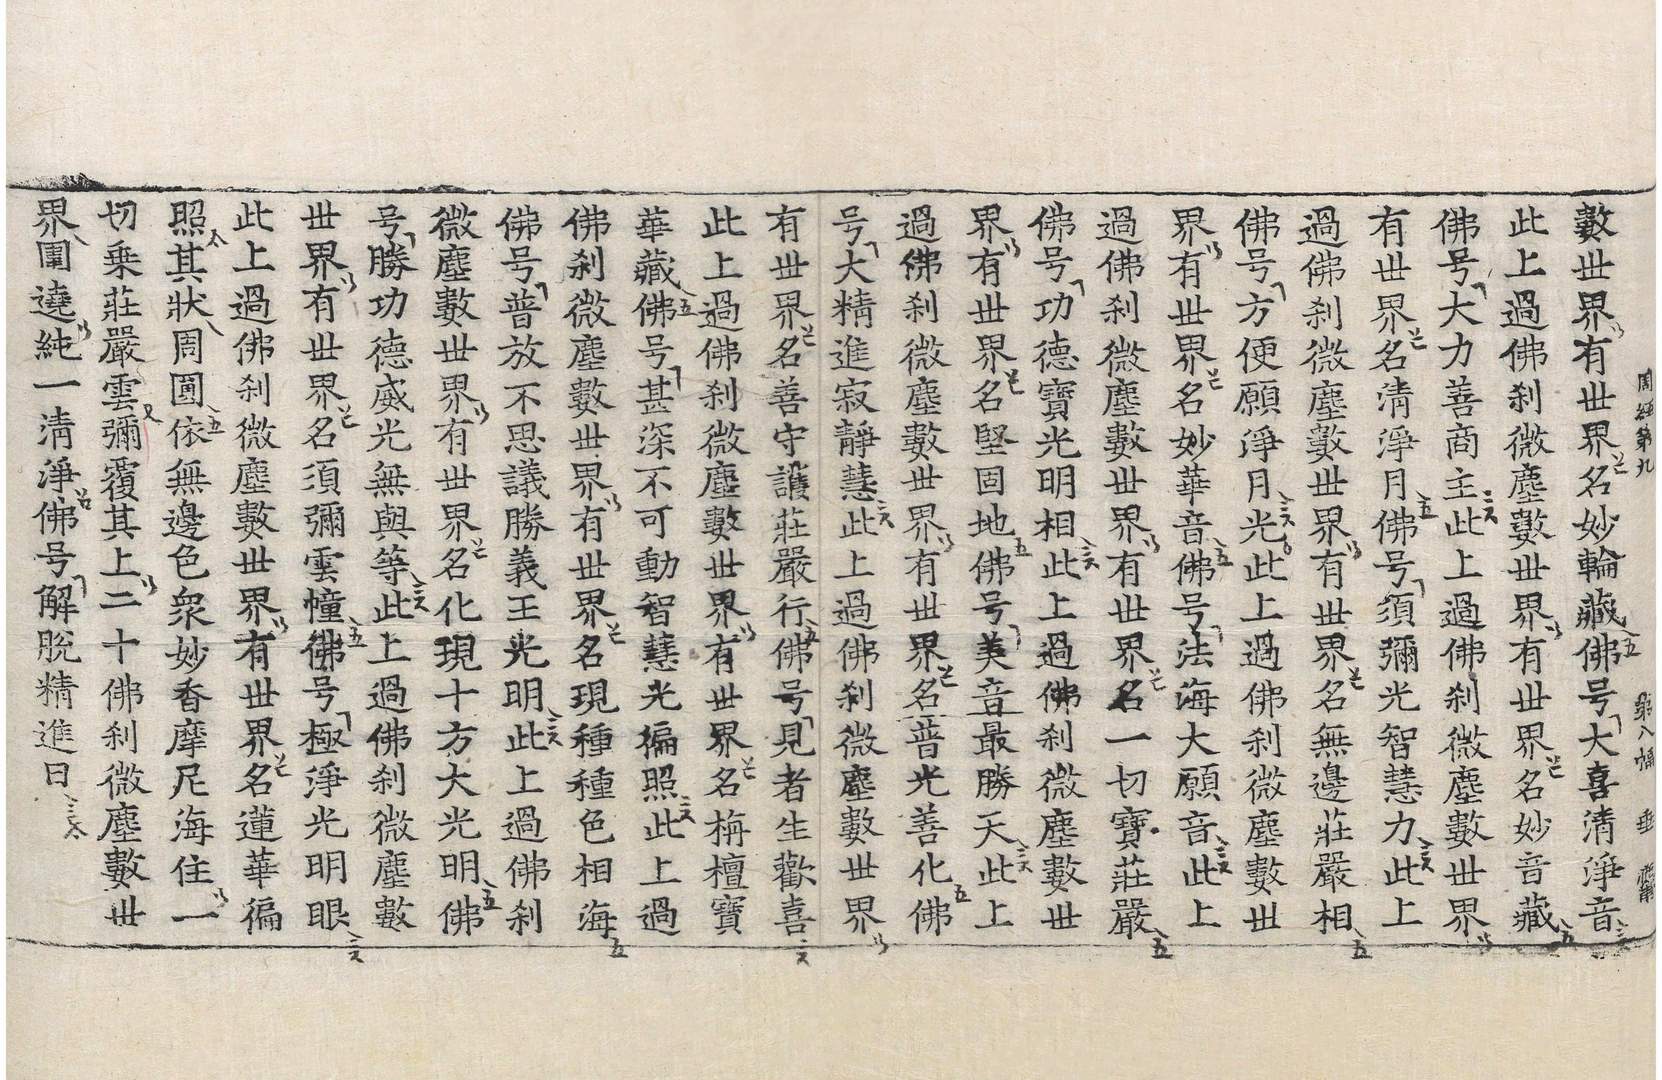 周經第九 第八幅 垂
數世界有世界名妙輪藏佛号大喜清淨音
此上過佛刹微塵數世界有世界名妙音藏
佛号大力善商主此上過佛刹微塵數世界
有世界名清淨月佛号須彌光智慧力此上
過佛刹微塵數世界有世界名無邊莊嚴相
佛号方便願淨月光此上過佛刹微塵數世
界有世界名妙華音佛号法海大願音此上
過佛刹微塵數世界有世界名一切寶莊嚴
佛号功德寶光明相此上過佛刹微塵數世
界有世界名堅固地佛号美音最勝天此上
過佛刹微塵數世界有世界名普光善化佛
号大精進寂靜慧此上過佛刹微塵數世界
有世界名善守護莊嚴行佛号見者生歡喜
此上過佛刹微塵數世界有世界名栴檀寶
華藏佛号甚深不可動智慧光徧照此上過
佛刹微塵數世界有世界名現種種色相海
佛号普放不思議勝義王光明此上過佛刹
微塵數世界有世界名化現十方大光明佛
号勝功德威光無與等此上過佛刹微塵數
世界有世界名須彌雲幢佛号極淨光明眼
此上過佛刹微塵數世界有世界名蓮華徧
照其狀周圓依無邊色衆妙香摩尼海住一
切乗莊嚴雲彌覆其上二十佛刹微塵數世
界圍遶純一清淨佛号解脫精進日